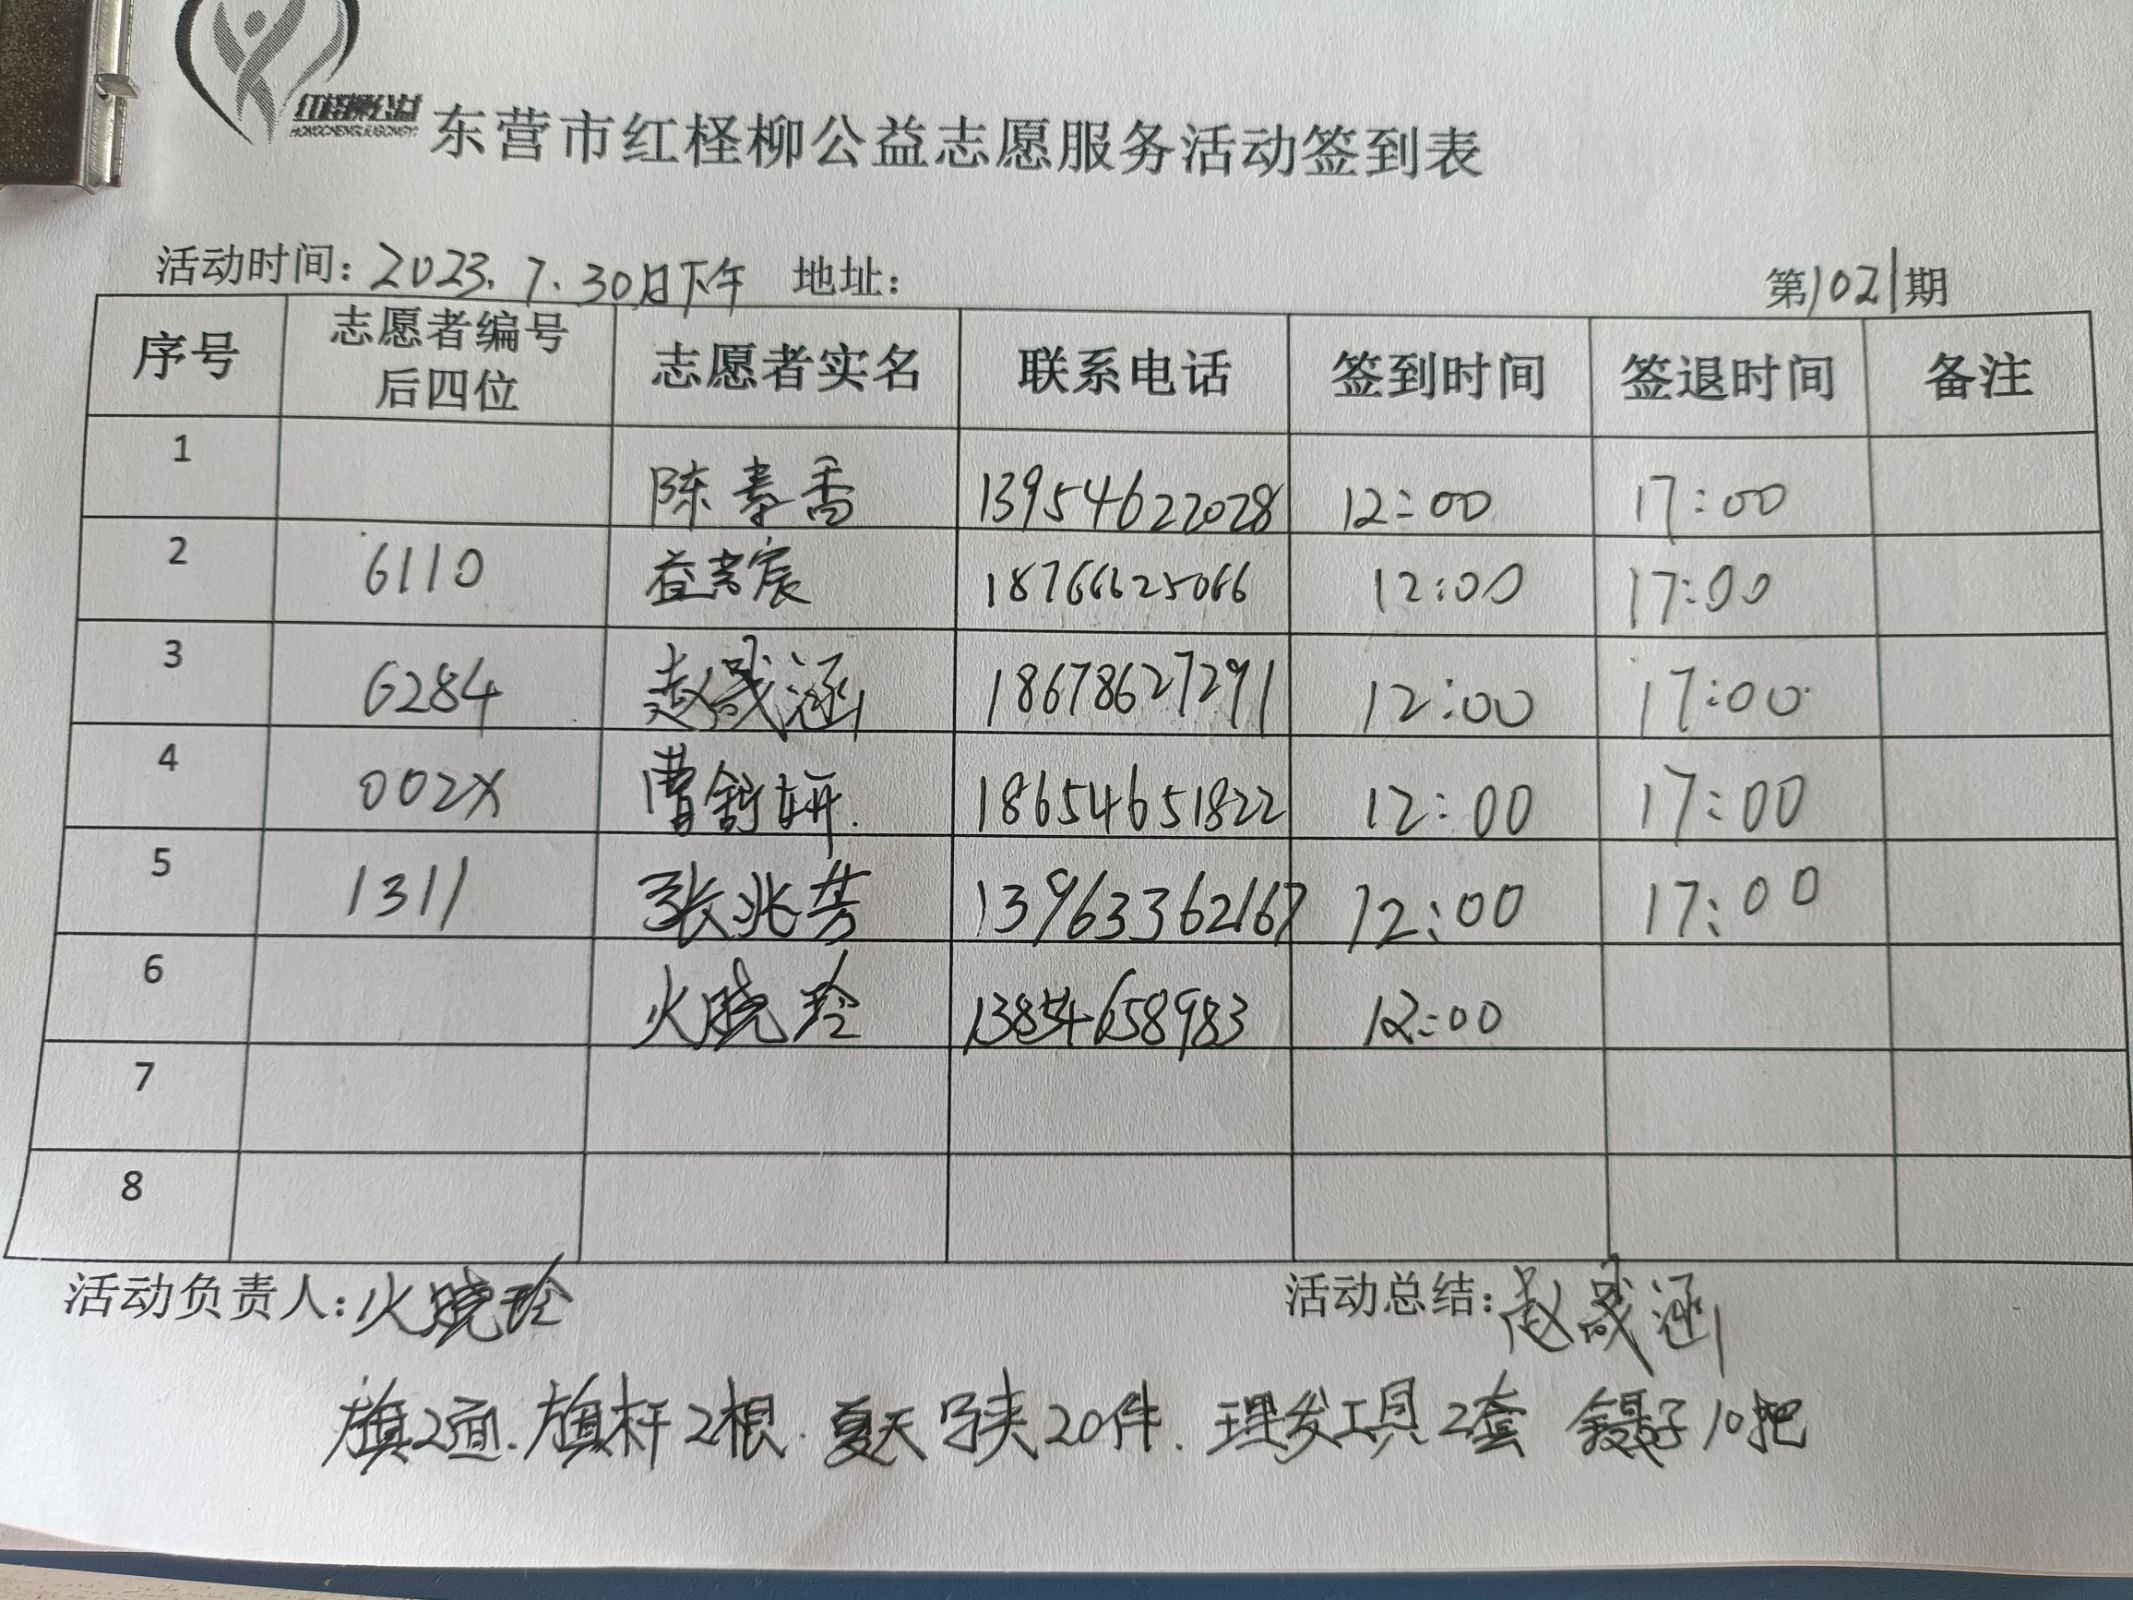 红柽柳公益
HONGCHENGLIUGONGYI
东营市红柽柳公益志愿服务活动签到表
活动时间：2023.7.30日下午 地址： 第1021期
序号 志愿者编号后四位 志愿者实名 联系电话 签到时间 签退时间 备注
1 陈素香 13954622028 12:00 17:00
2 6110 18766625066 12:00 17:00
3 6284 赵晟涵 18678627291 12:00 17:00
4 002X 曹舒妍. 18654651822 12:00 17:00
5 1311 张兆芳 13963362167 12:00 17:00
6 火晓玲 13854658983 12:00
7
8
活动负责人：火晓玲 活动总结：赵晟涵
旗2面.旗杆2根.夏天马夹20件.理发工具2套 镊子10把